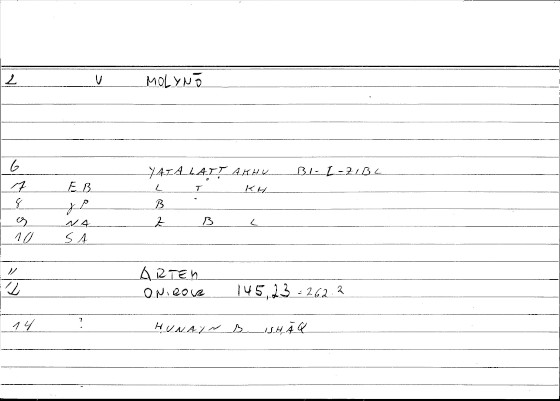 2 V MOLYNŌ
6 YATALAṬṬAKHU BI-I-ZIBL
7 EB L Ṭ KH
8 YP B
9 NA Z B L
10 SA
11 ARTEM
12 ONIROCR 145,23 - 262.2
14 ? ḤUNAYN B ISḤĀQ